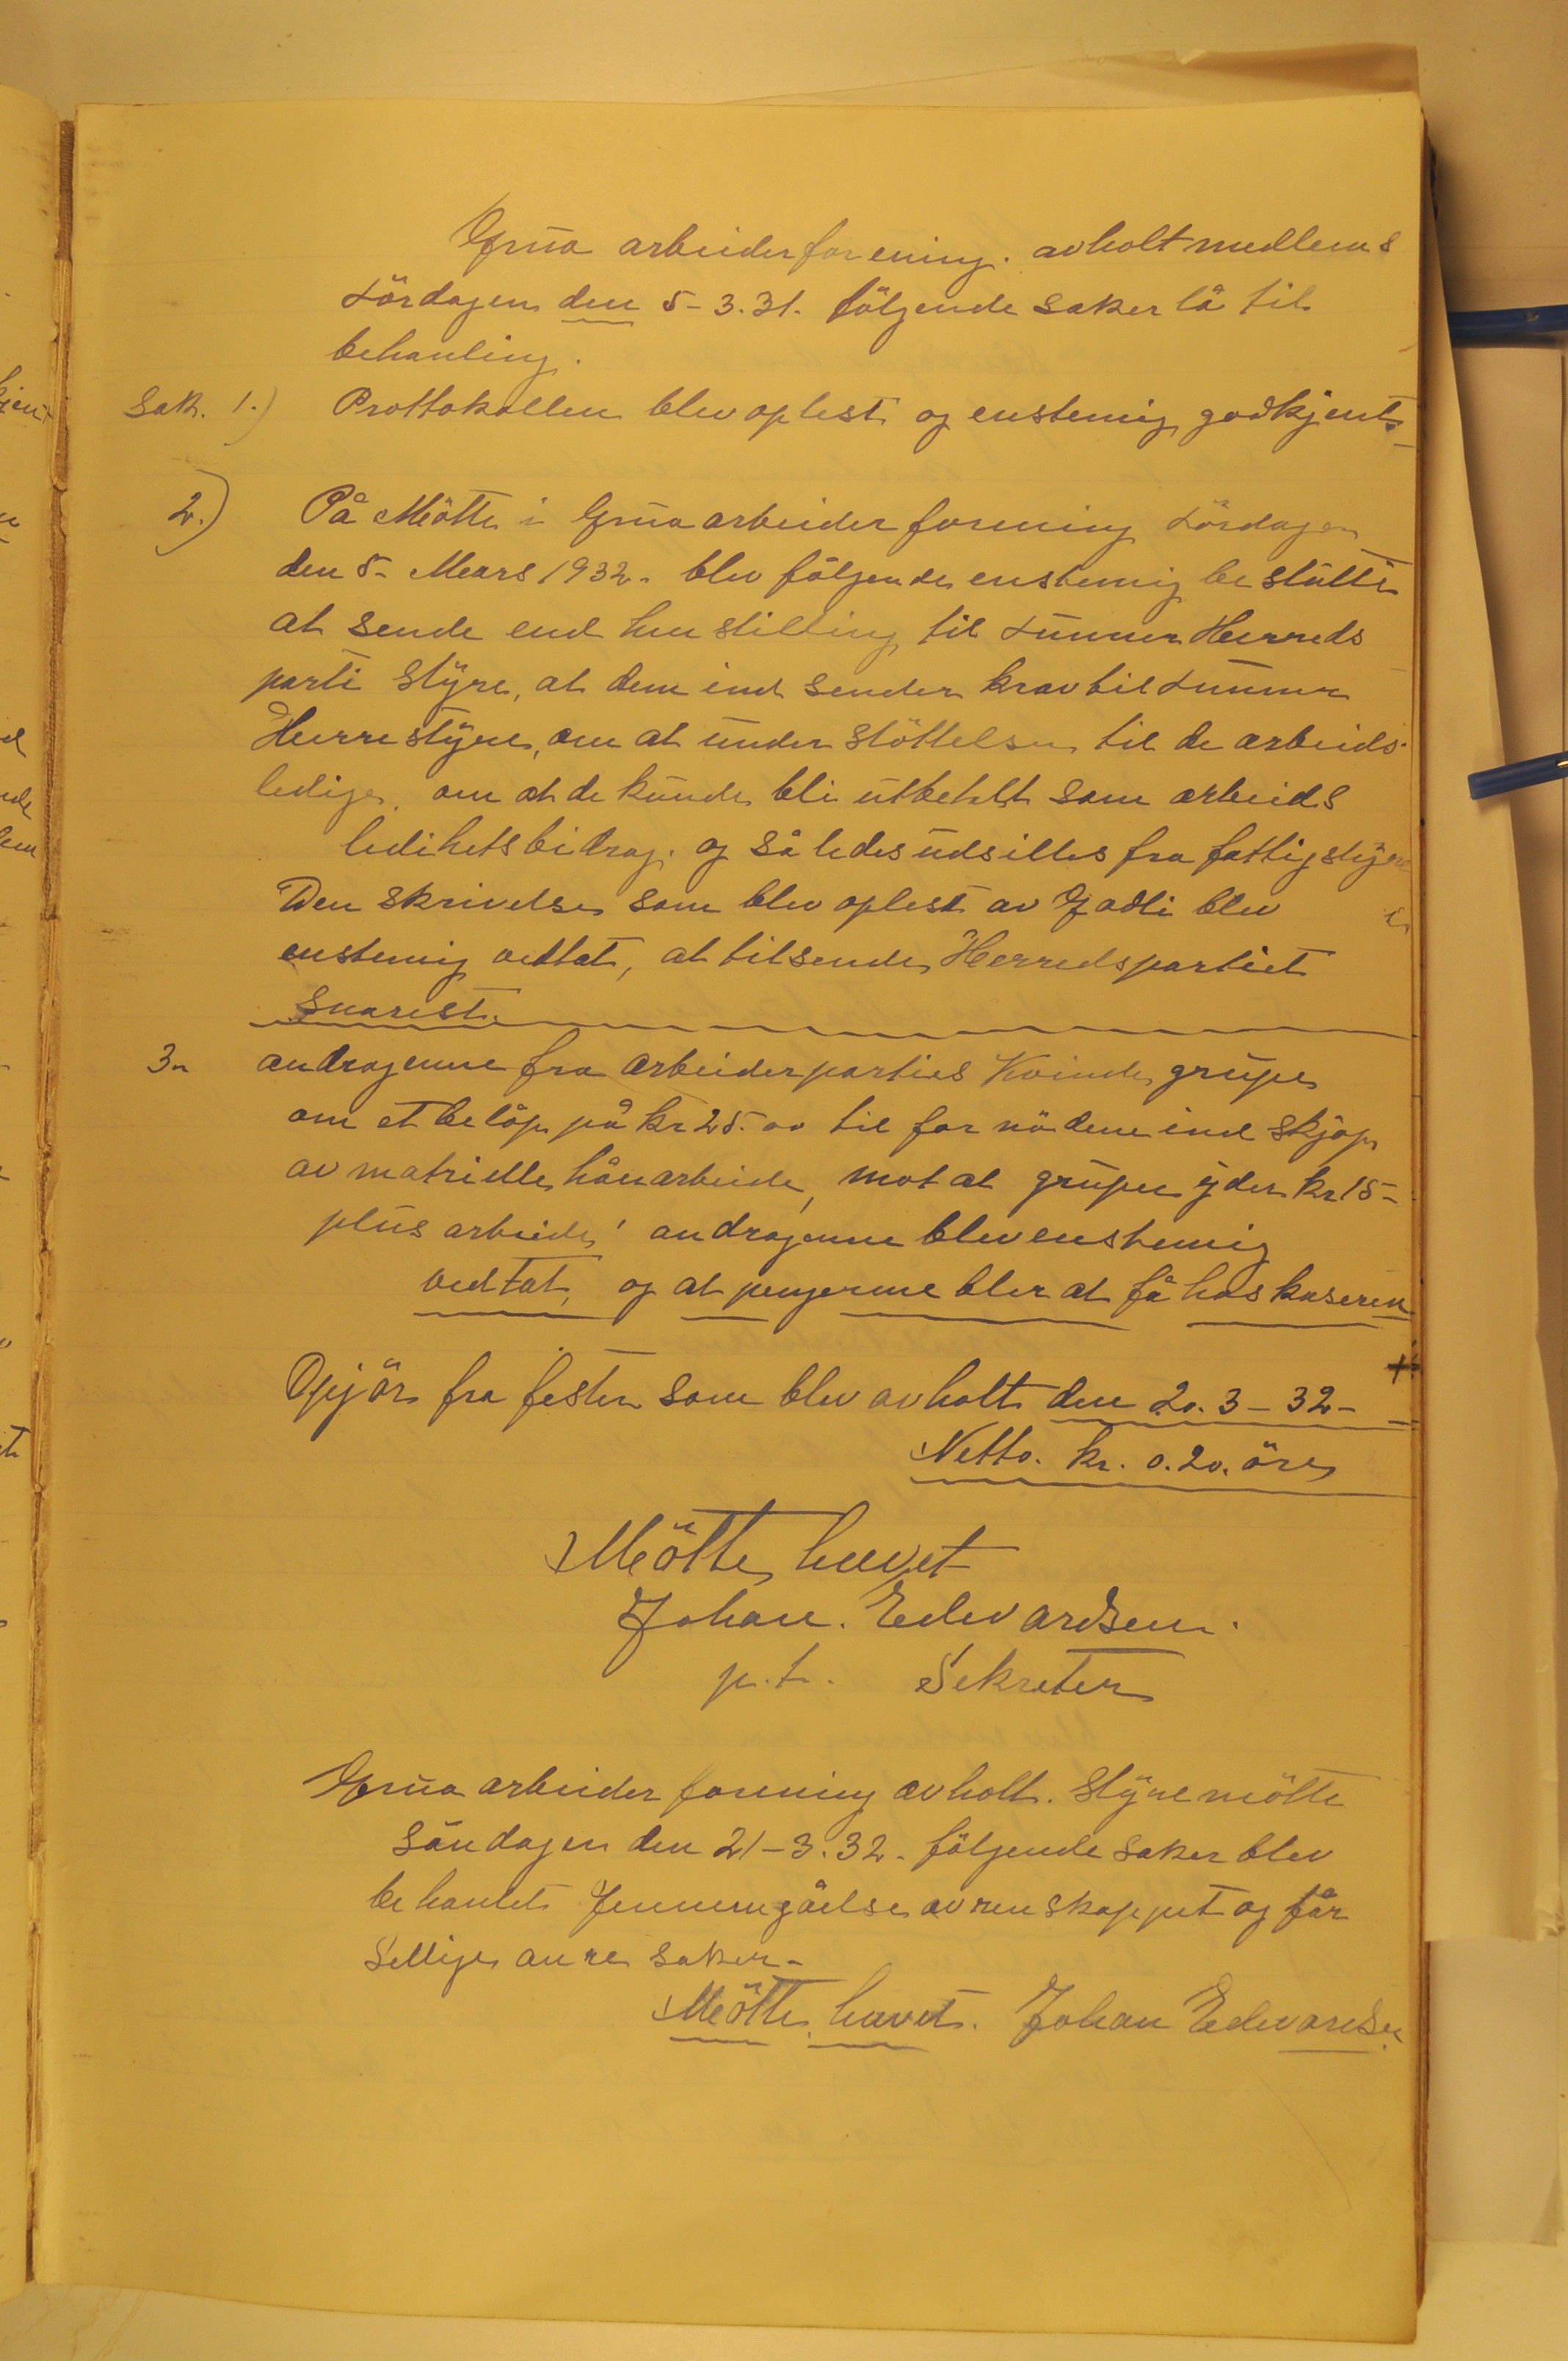 Grua arbeiderforening. avholt medlems
Lördagen den 5-3.31. fölgende saker lå til
behanling.
Sak. 1.) Prottokollen blev oplest og enstemig godkjent.
2.) På Mötte i Grua arbeiderforening Lördagen
den 5- Mars 1932. blev fölgende enstemig beslutte
at sende end henstilling til Lunner Herreds
parti styre, at dem ind sender krav til Lunner
Herrestyre, om at under stöttelsen til de arbeids-
ledige, om at de kunde bli utbetalt som arbeids
ledihetsbidrag. og således udsilles fra fattigstyre
Den skrivelse som blev oplest av Jadli blev
enstemig vedtat, at tilsende Herredspartiet
snarest.
3. andragenne fra arbeiderparties Kvinde grupe
om et belöp på kr 25.00 til for nödene ind skjöp
av matrielle hånarbeide, mot at grupen yder kr 15-
plus arbeide! andragenne blev enstemig
vedtat, og at pengerne blir at få hos kaseren
Opjör fra festen som blev avholt den 20.3-32-
Netto. kr. 0.20. öre
Mötte hevet
Johan. Edvardsen.
p.t. Sekreter
Grua arbeiderforening avholt. Styremötte
Söndagen den 21-3.32. fölgende saker blev
behanlet Jennemgåelse av renskappet og for
sellige anre saker-
Mötte hevet. Johan Edvardsen